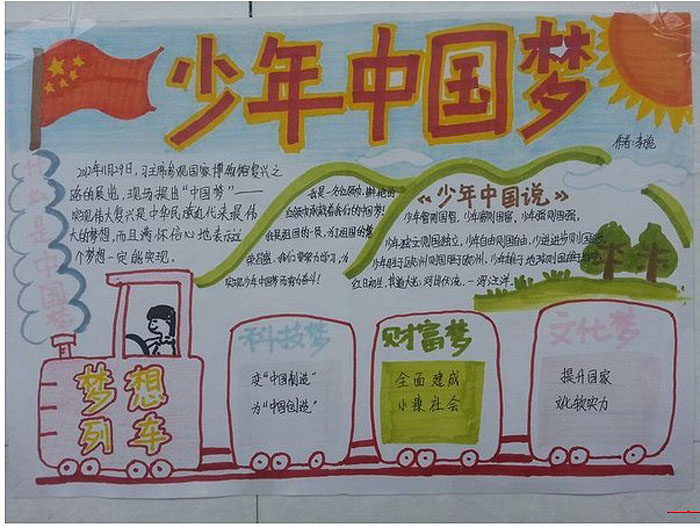 少年中国梦
作者:李
什么是中国梦
2012年11月29日，习主席参观国家博物馆复兴之
路的展览，现场提出“中国梦”——
实现伟大复兴是中华民族近代来最伟
大的梦想，而且满怀信心地表示这
个梦想一定能实现。
我是一名少先队
红领巾
我是祖国的一员，为了祖国的繁
荣昌盛，我们要努力学习，为
实现少年中国梦而努力奋斗！
《少年中国说》
少年智则国智，少年富则国富，少年强则国强，
少年独立则国独立，少年自由则国自由，少年进步则国进
少年胜于欧洲则国胜于欧洲，少年雄于地球则国雄于地球
红日初生，其道大光；河出伏流，一泻汪洋。
梦想
列车
科技梦
变“中国制造”
为“中国创造”
财富梦
全面建成
小康社会
文化梦
提升国家
文化软实力